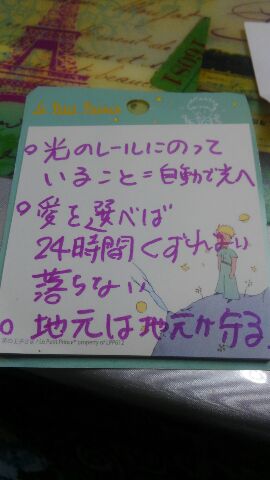 Le Petit Prince
○光のレールにのって
いること=自動で光へ
○愛を選べば
24時間くずれない
落ちない
○地元は地元が守る
Le Petit Prince® property of LPP612